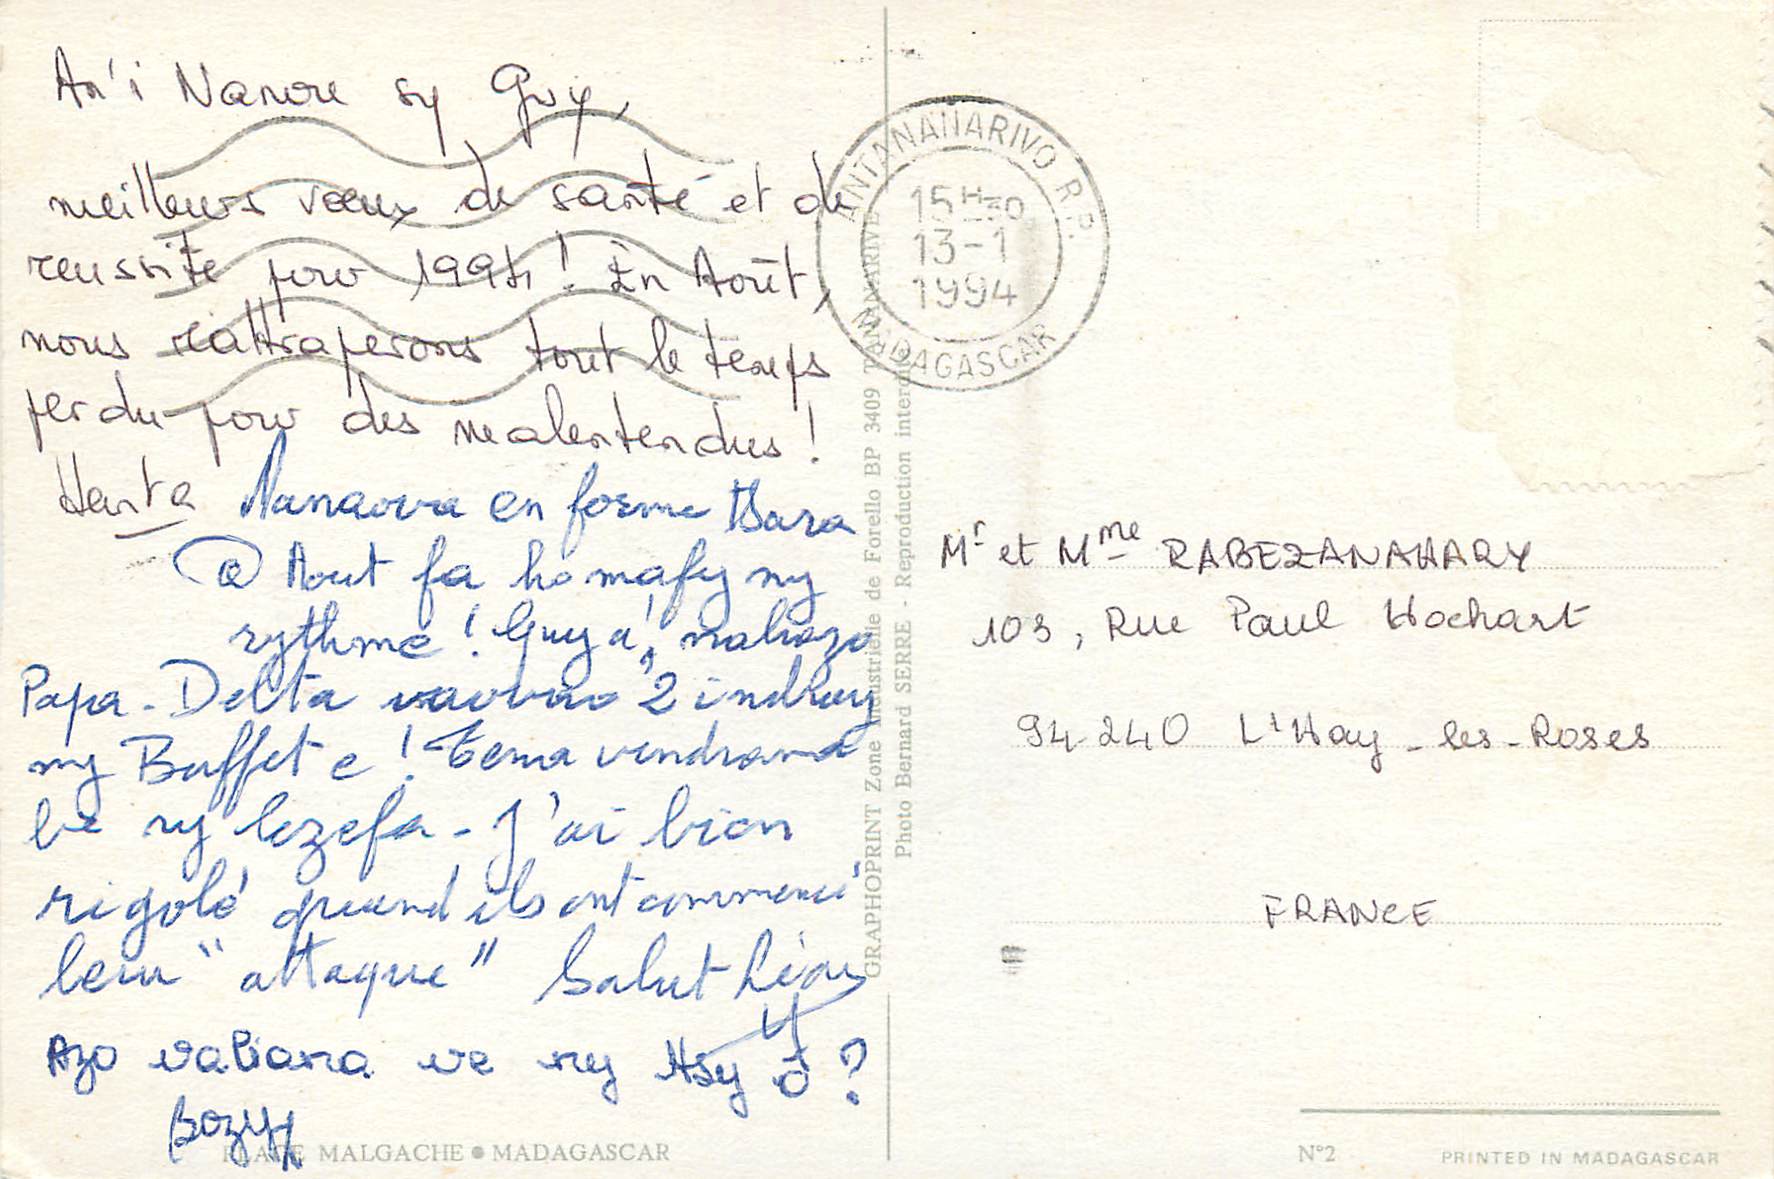 An'i Nanore sy Guy,
meilleurs vœux de santé et de
reussite pour 1994! En Août,
nous rattraperons tout le temps
perdu pour des malentendus!
Hanta
en forme tsara
@ Aout fa ho mafy ny
rythme! Guy a!, mahazo
Papa - Delta 2 indray
ny Buffet e! Tena vendrana
be ry lezefa - J'ai bien
rigolé quand ils ont commencé
leur "attaque" Salut Léon
Azo valiana ve ny Hsy ô?
Bozy
PLAGE MALGACHE • MADAGASCAR
GRAPHOPRINT Zone Industrielle de Forello BP 3409 TANANARIVE
Photo Bernard SERRE - Reproduction interdite
ANTANANARIVO R.P.
15H30
13-1
1994
MADAGASCAR
Mr et Mme RABEZANAHARY
103, Rue Paul Hochart
94-240 L'Hay-les-Roses
FRANCE
N°2
PRINTED IN MADAGASCAR